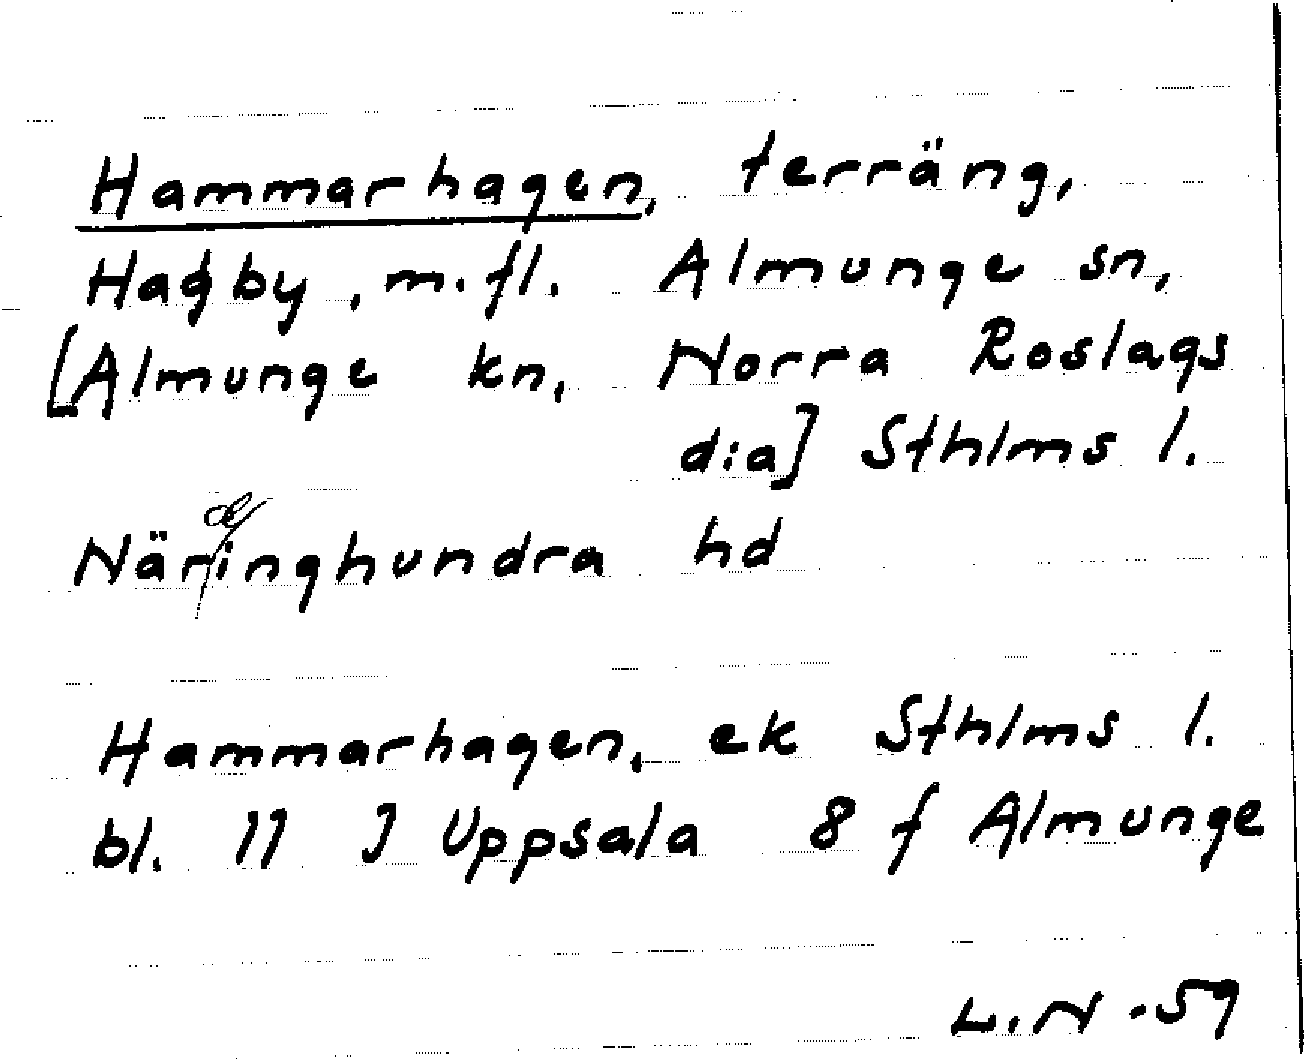 Hammarhagen, terräng,
Hagby, m.fl. Almunge sn,
[Almunge kn, Norra Roslags
d:a] Sthlms l.
Näringhundra hd
Hammarhagen, ek Sthlms l.
bl. 11 J Uppsala 8 f Almunge
L.N -59